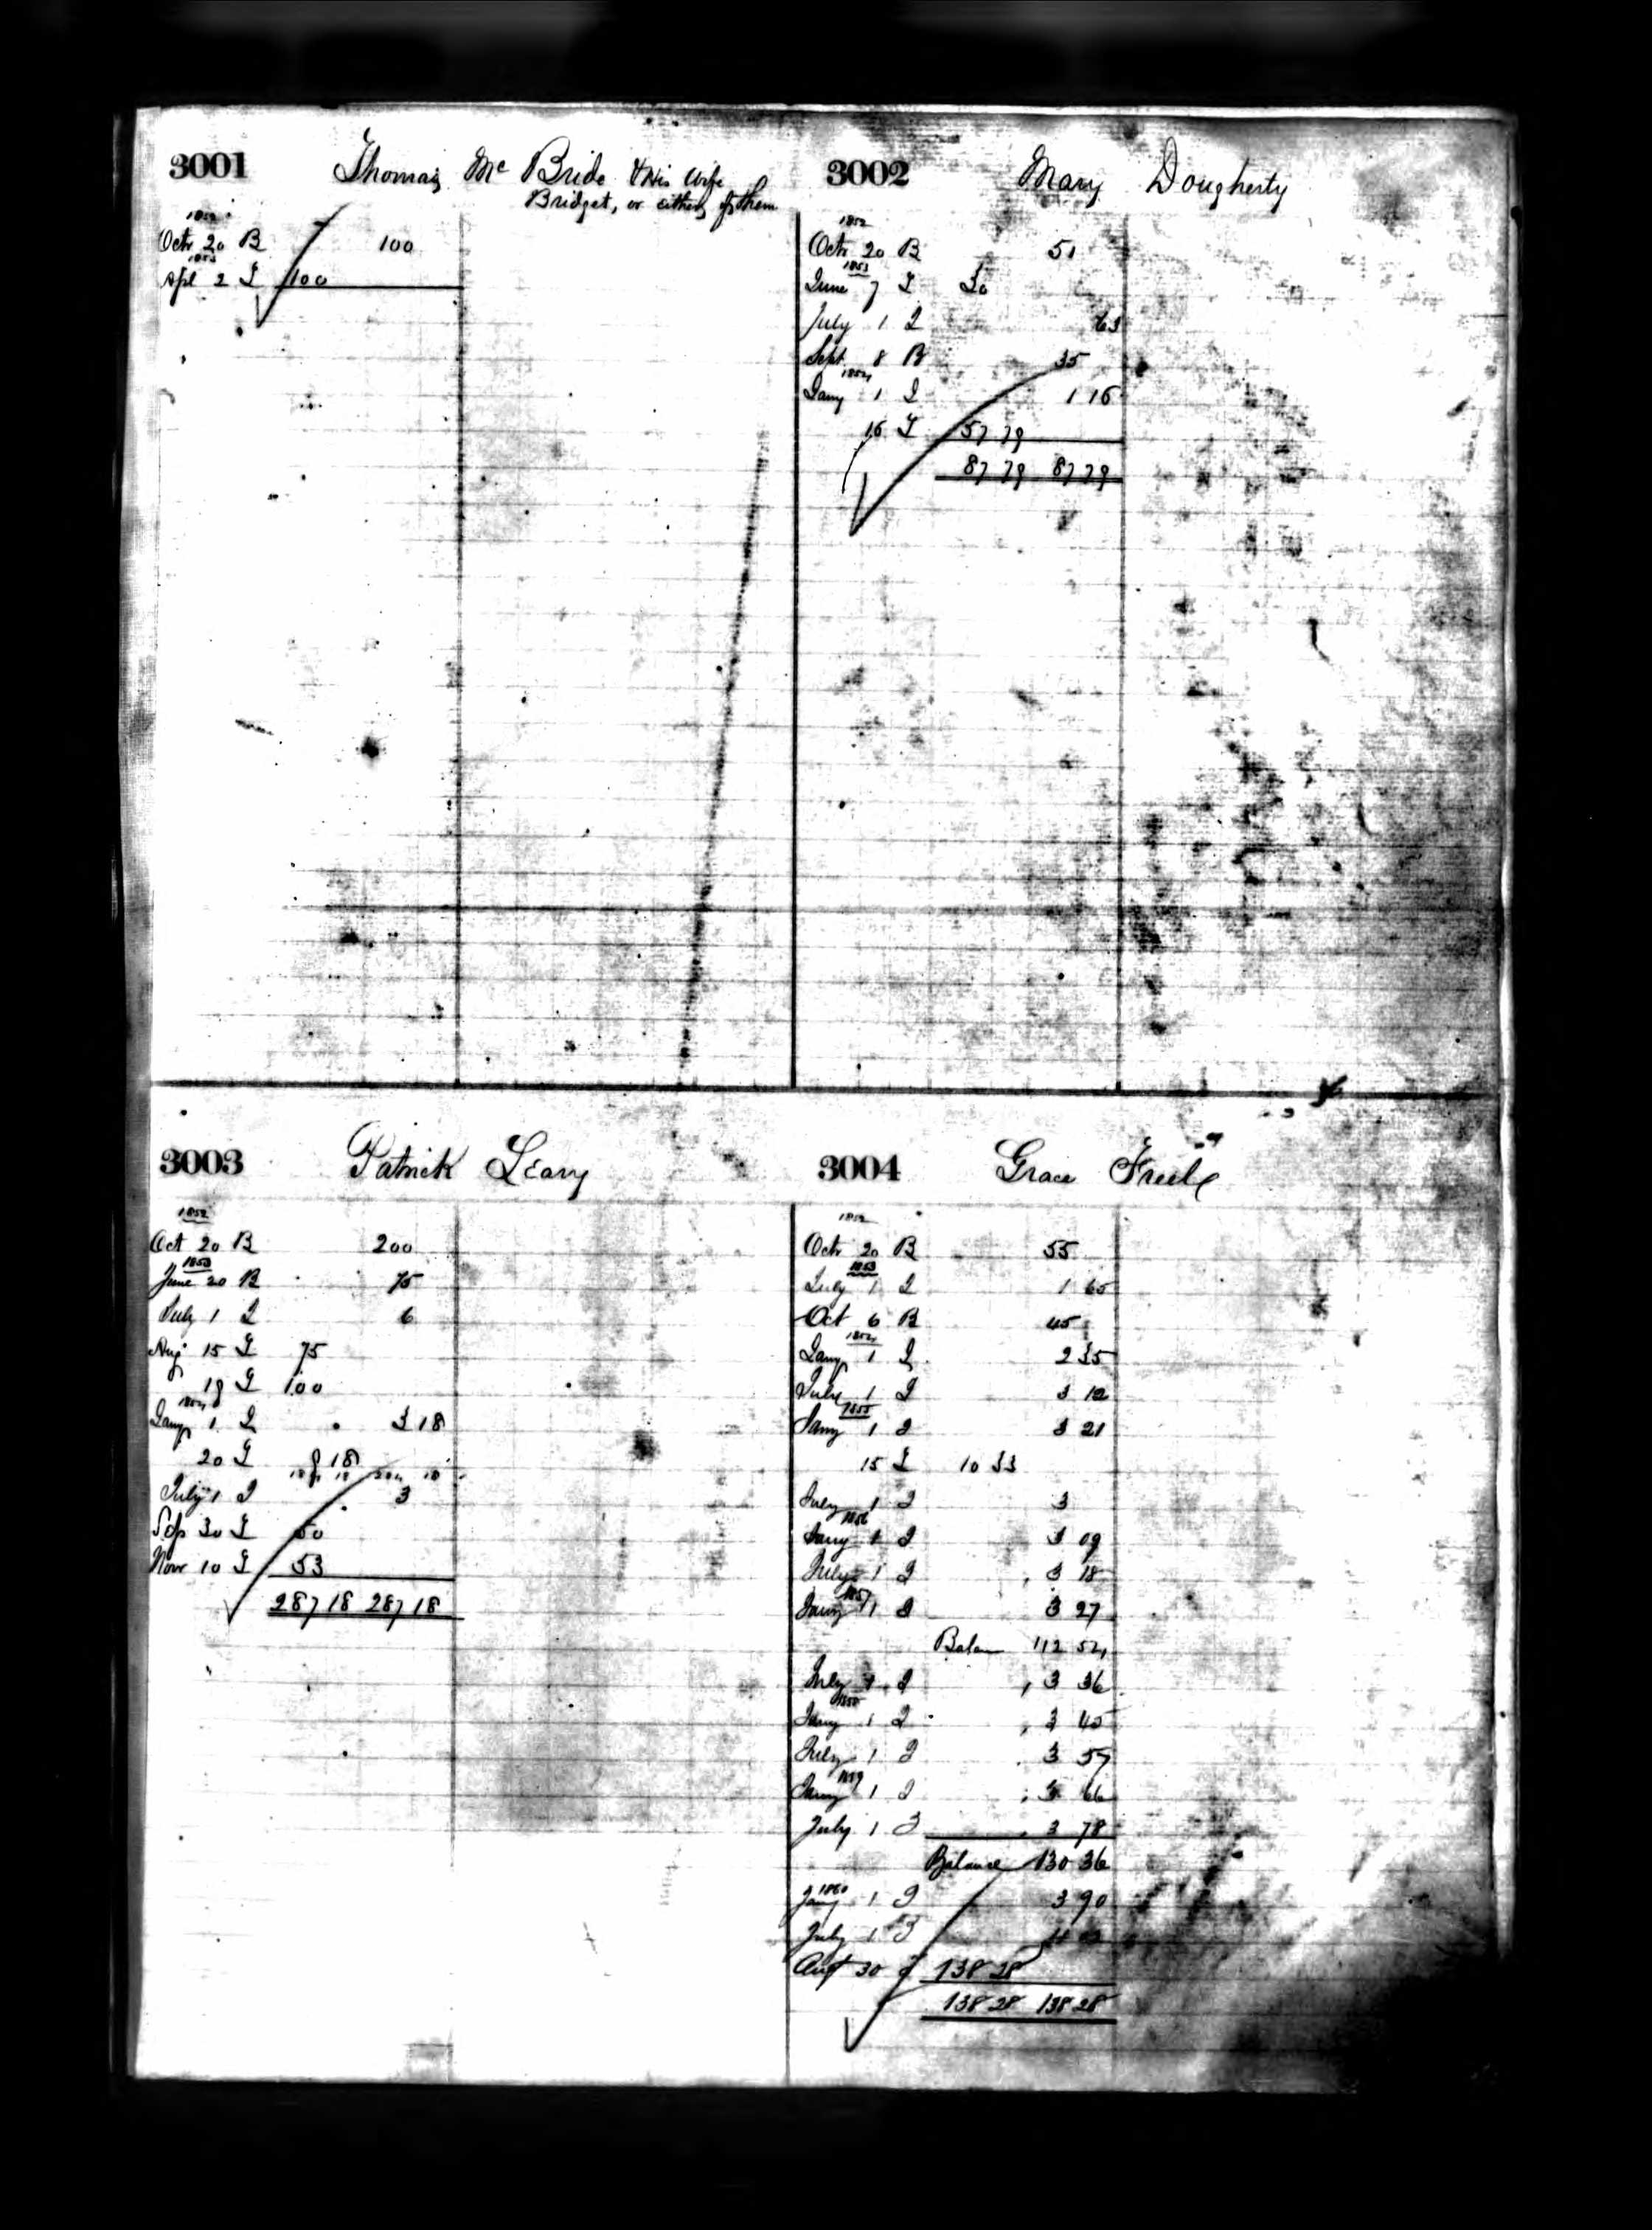 3001 Thomas Mc Bride & His Wife
Bridget, or either of them
1852
Octr 20 B 100
1853
Apl 2 T 100
3002 Mary Dougherty
1852
Octr 20 B 51
1853
June 7 T 30
July 1 I 63
Sept 8 B 35
1854
Jany 1 I 1 16
16 T 57 79
87 79 87 79
3003 Patrick Leary
1852
Oct 20 B 200
1853
June 20 B 75
July 1 I 6
Aug 15 T 75
19 T 100
1854
Jany 1 I 3 18
20 T 9 18
July 1 I 3
Sep 30 T 50
Novr 10 T 53
287 18 287 18
3004 Grace Freele
1852
Octr 20 B 55
1853
July 1 I 1 65
Oct 6 B 45
1854
Jany 1 I 2 35
July 1 I 3 12
1855
Jany 1 I 3 21
15 T 10 33
July 1 I 3
1856
Jany 1 I 3 09
July 1 I 3 18
1857
Jany 1 I 3 27
Balan 112 54
July 1 I 3 36
1858
Jany 1 I 3 45
July 1 I 3 57
1859
Jany 1 I 3 66
July 1 I 3 78
Balance 130 36
1860
Jany 1 I 3 90
July 1 I
Augt 30 T 138 28
138 28 138 28